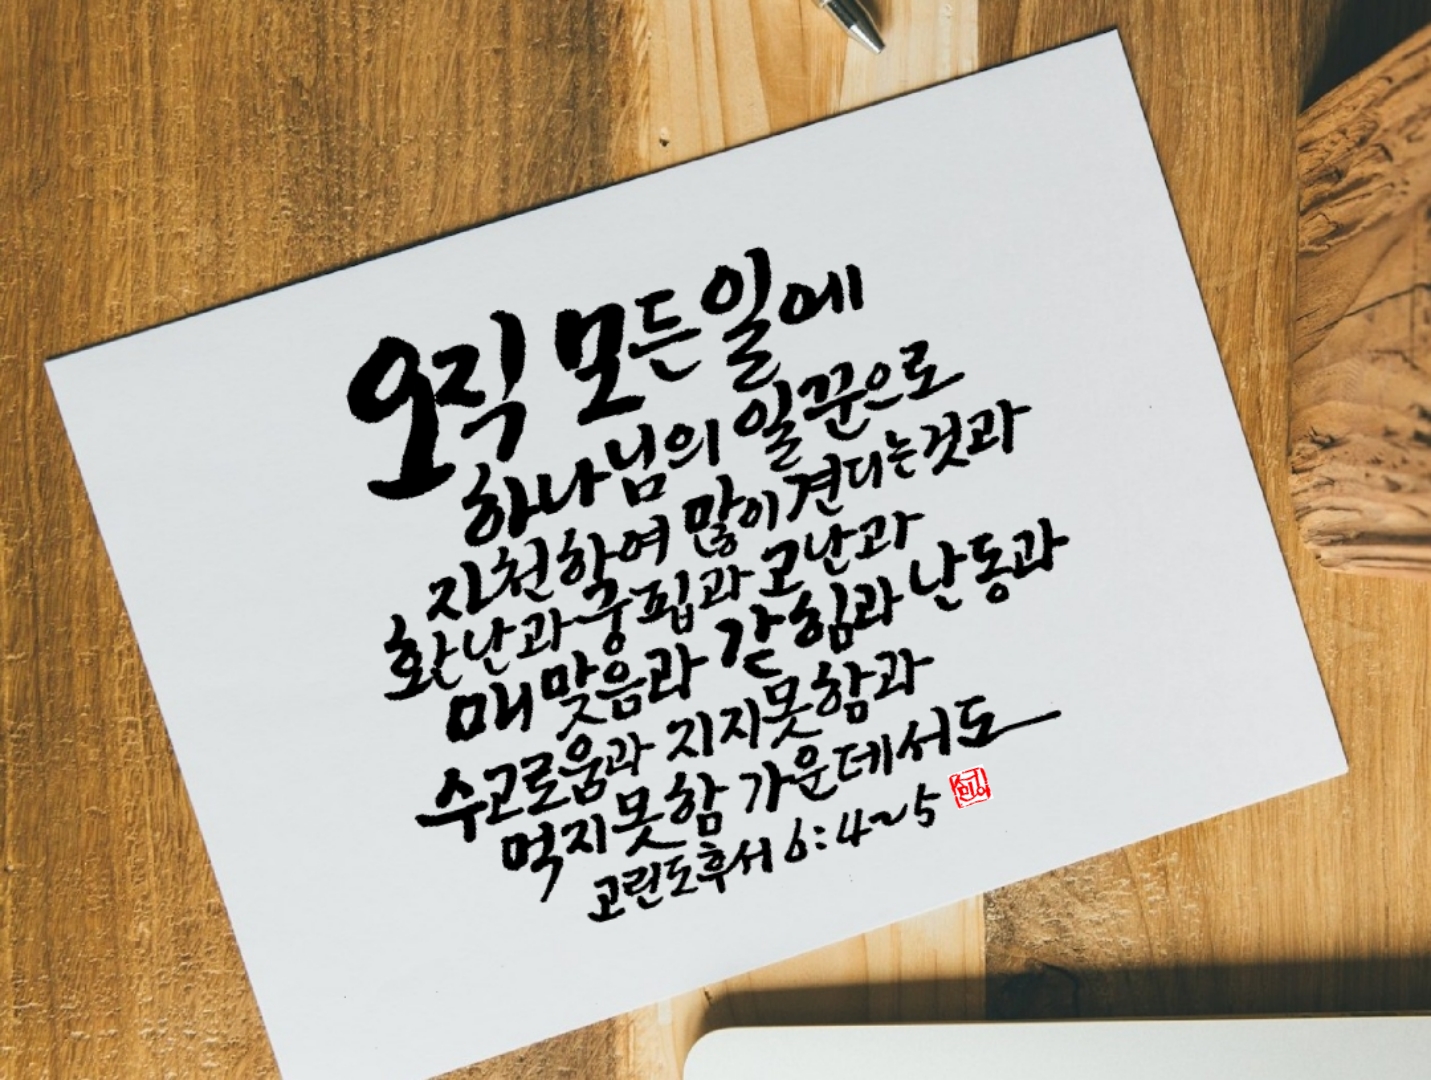 오직 모든 일에
하나님의 일꾼으로
지천하여 많이 견디는것과
환난과 궁핍과 고난과
매맞음과 갇힘과 난동과
수고로움과 지지못함과
먹지못함 가운데서도
고린도후서 6:4~5